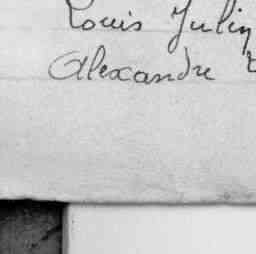 Louis Julin
Alexandre